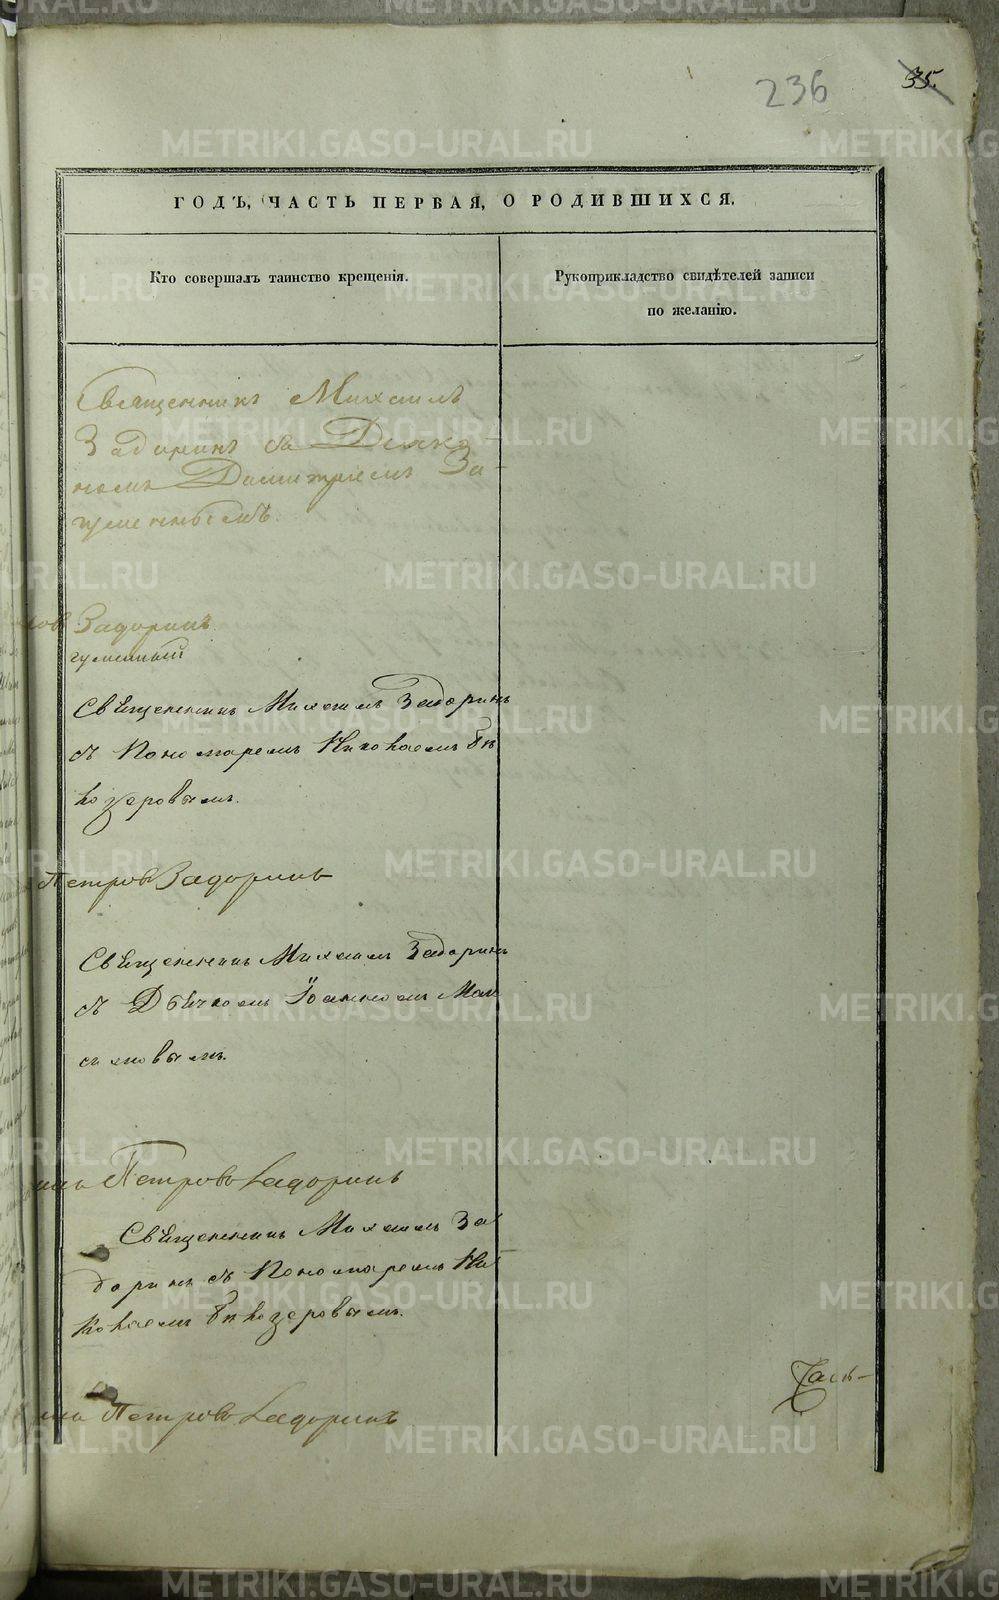 236
35.
ГОДЪ, ЧАСТЬ ПЕРВАЯ, О РОДИВШИХСЯ.
Кто совершалъ таинство крещенія.
Рукоприкладство свидѣтелей записи
по желанію.
Священникъ Михаилъ
Задоринъ съ Діяко-
номъ Димитріемъ За-
гуменнымъ.
Задоринъ
гуменный
Священникъ Михаилъ Задоринъ
съ Пономаремъ Николаемъ Бѣ
лозеровымъ.
Петровъ Задоринъ
Священникъ Михаилъ Задоринъ
съ Дьячкомъ Іоанномъ
Петровъ Задоринъ
Священникъ Михаилъ За
доринъ съ Пономаремъ Ни
колаемъ Бѣлозеровымъ.
Петровъ Задоринъ
Часть
METRIKI.GASO-URAL.RU